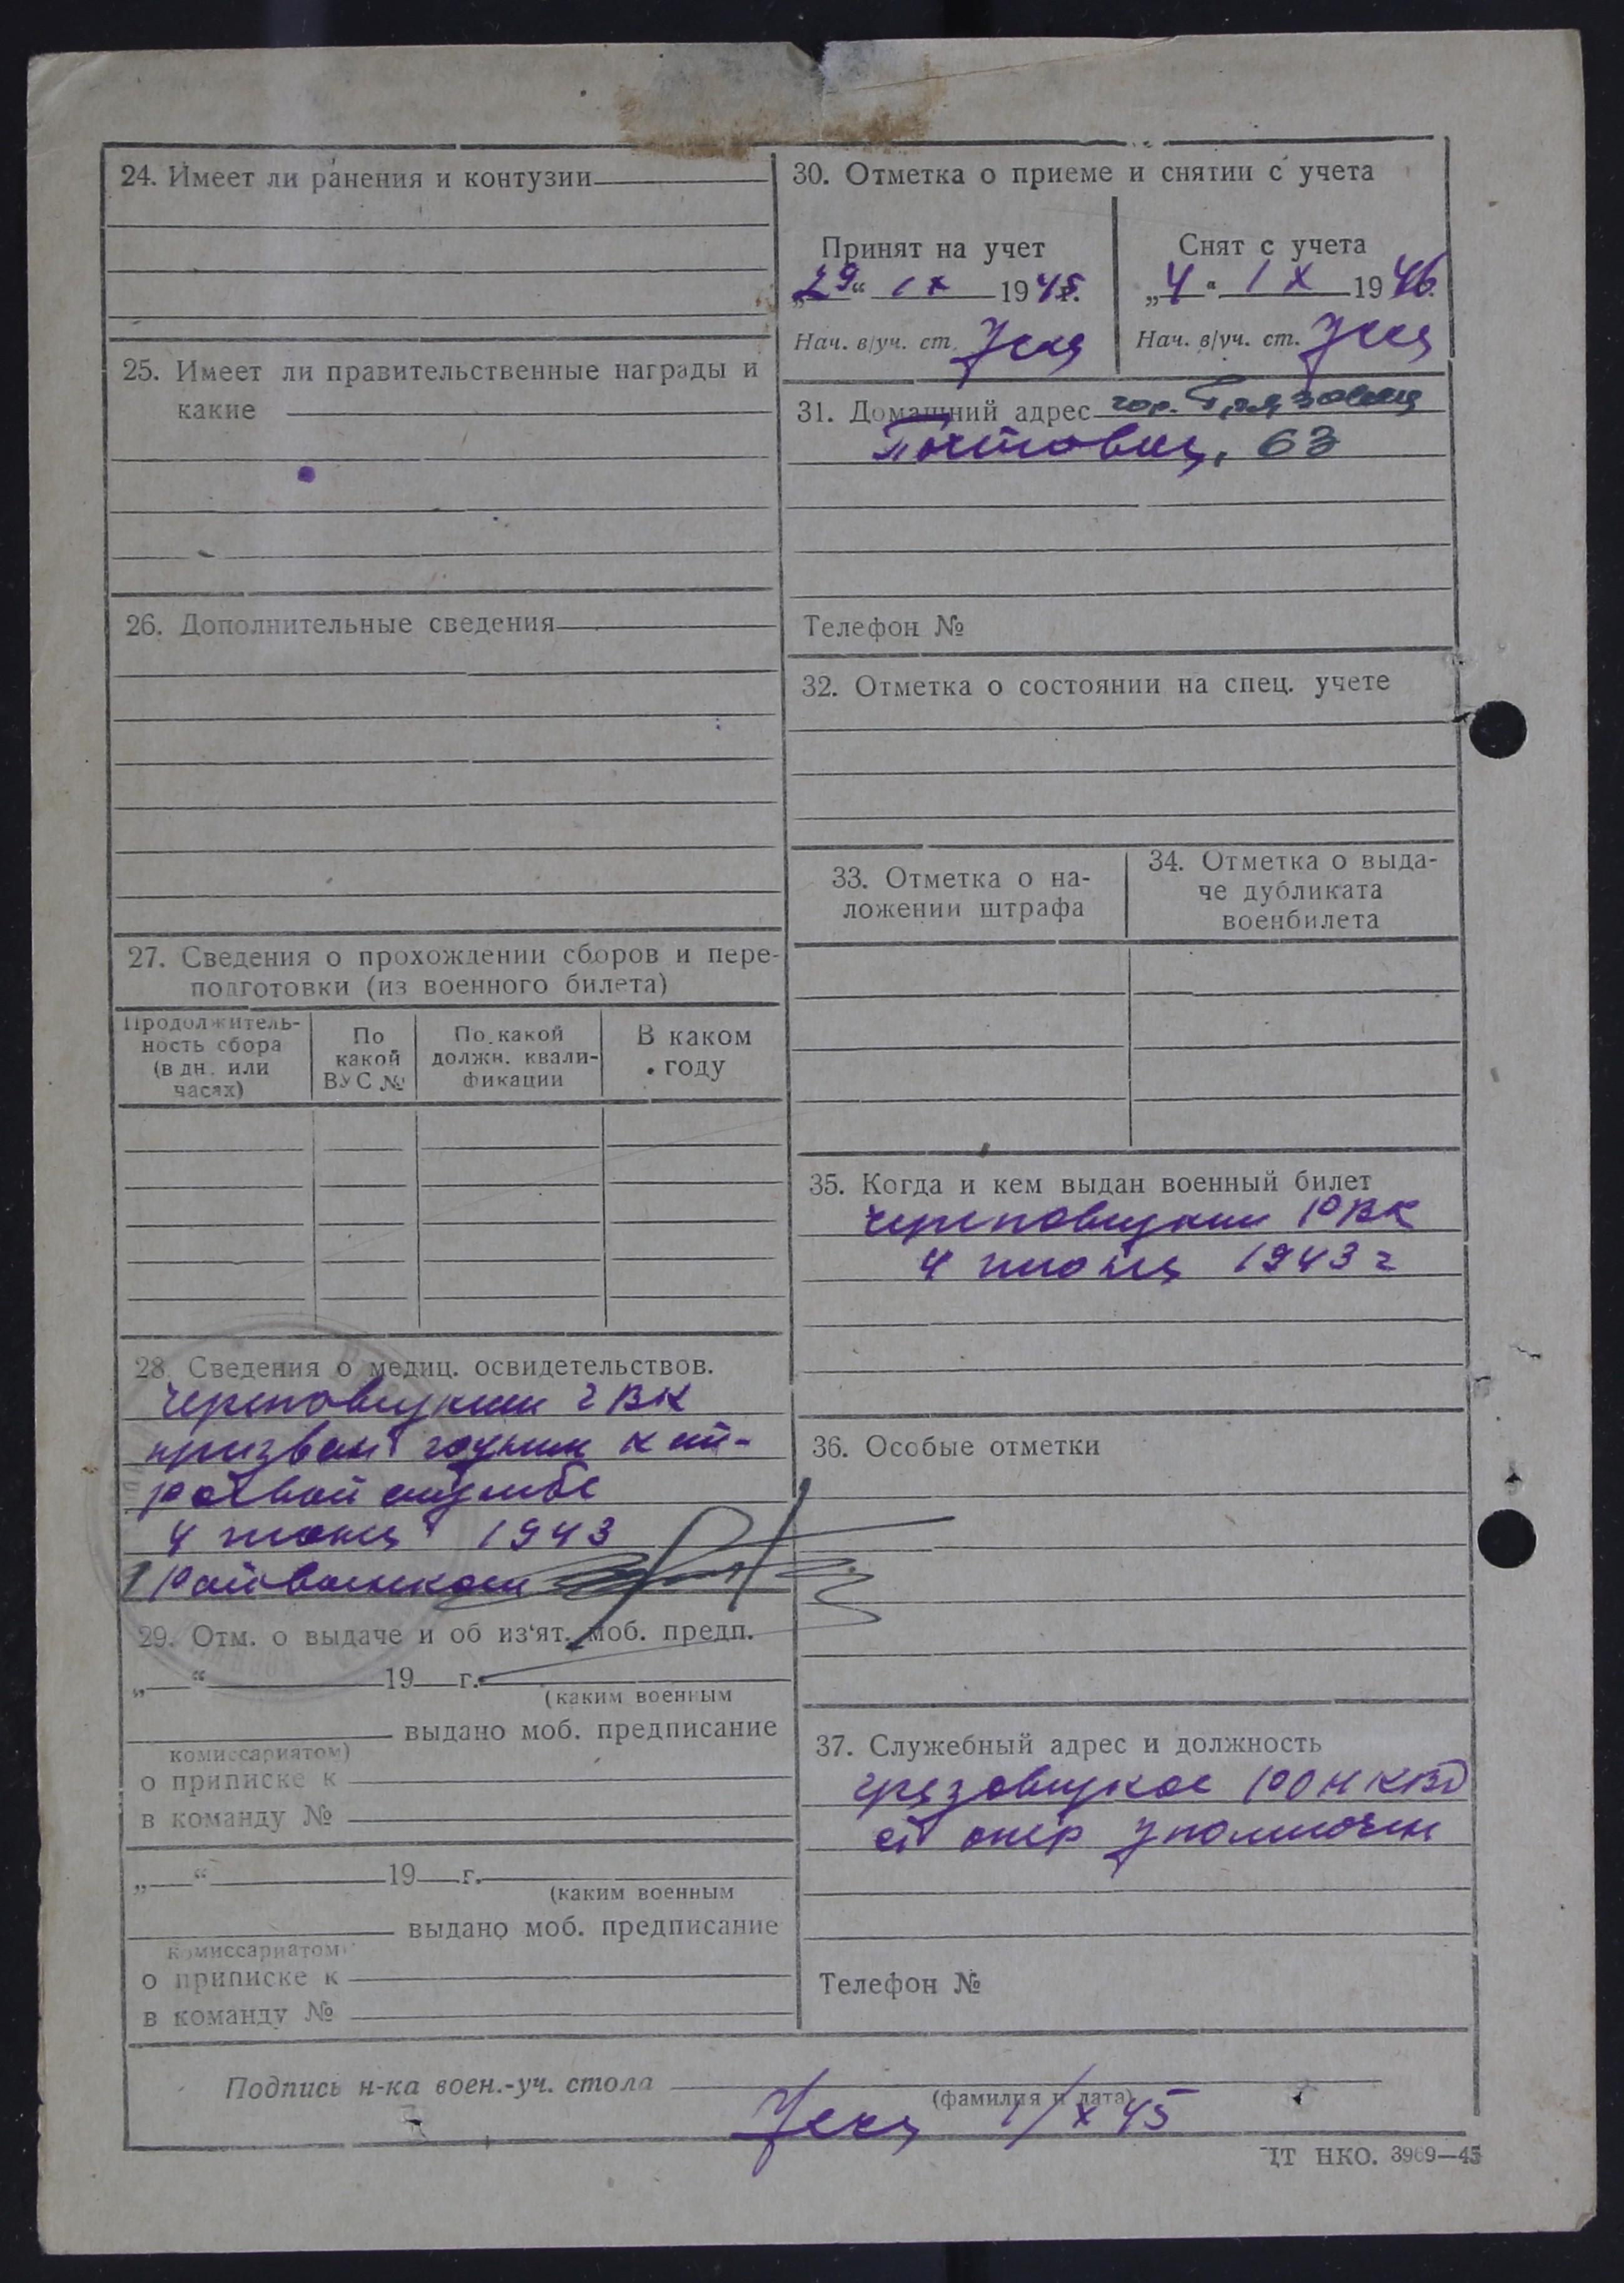 24. Имеет ли ранения и контузии
25. Имеет ли правительственные награды и
какие
26. Дополнительные сведения
27. Сведения о прохождении сборов и пере-
подготовки (из военного билета)
Продолжитель-
ность сбора
(в дн. или
часах)
По
какой
ВУС №
По какой
должн. квали-
фикации
В каком
году
28. Сведения о медиц. освидетельствов.
Череповецким ГВК
призван годным к
службе
4 июня 1943
Райвоенком
29. Отм. о выдаче и об из‘ят. моб. предп.
„ “ 19 г.
(каким военным
выдано моб. предписание
комиссариатом)
о приписке к
в команду №
„ “ 19 г.
(каким военным
выдано моб. предписание
комиссариатом)
о приписке к
в команду №
30. Отметка о приеме и снятии с учета
Принят на учет
„29“ IX 1945г.
Нач. в/уч. ст.
Снят с учета
„4“ IX 1946
Нач. в/уч. ст.
31. Домашний адрес гор. Грязовец
Почтовая, 63
Телефон №
32. Отметка о состоянии на спец. учете
33. Отметка о на-
ложении штрафа
34. Отметка о выда-
че дубликата
военбилета
35. Когда и кем выдан военный билет
Череповецким РВК
4 июня 1943 г
36. Особые отметки
37. Служебный адрес и должность
Грязовецкое РОНКВД
ст опер уполномочен
Телефон №
Подпись н-ка воен.-уч. стола
(фамилия и дата)
1/X 45
ЦТ НКО. 3969—45